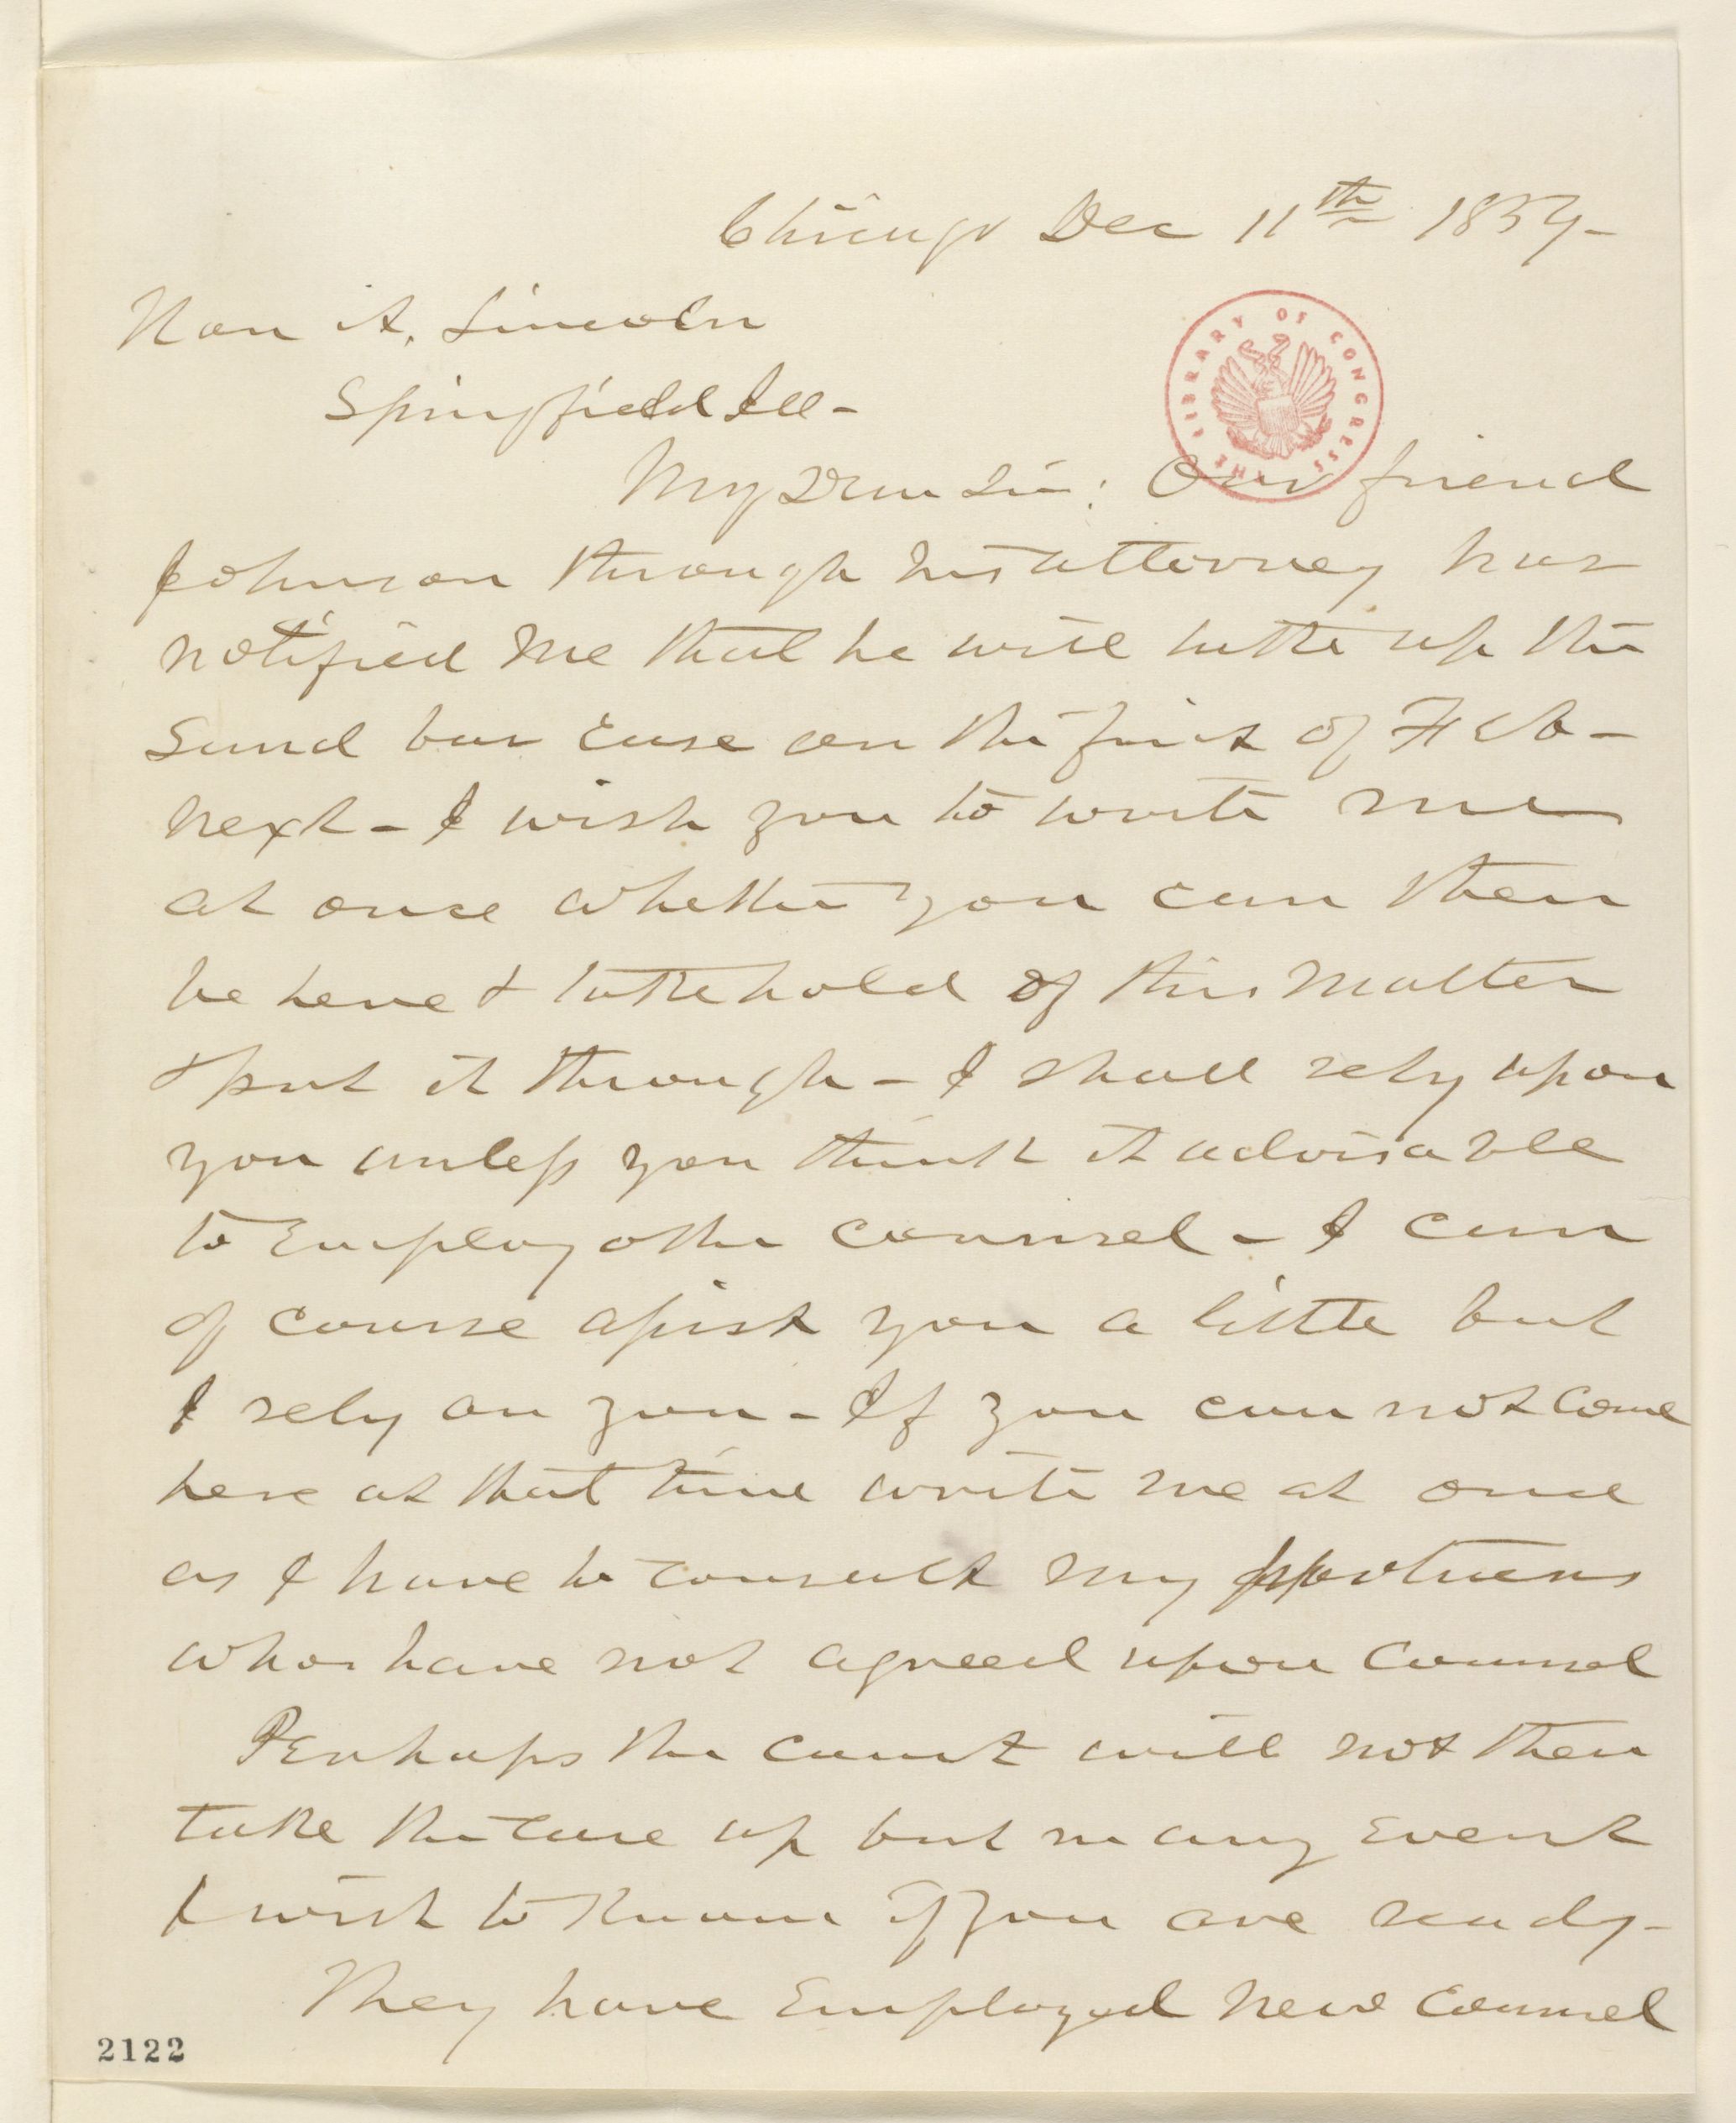 Chicago Dec 11th 1859-
Hon A. Lincoln
Springfield Ill-
THE LIBRARY OF CONGRESS
My Dear Sir: Our friend
Johnson through his attorney has
notified me that he will take up the
Sand bar Case on the first of Feb-
next - I wish you to write me
at once whether you can then
be here & take hold of this matter
& put it through - I shall rely upon
you unless you think it advisable
to Employ other counsel - I can
of course assist you a little but
I rely on you - If you can not come
here at that time write me at once
as I have to consult my partners
who have not agreed upon Counsel
Perhaps the court will not then
take the case up but in any Event
I wish to know if you are ready-
They have Employed new Counsel
2122